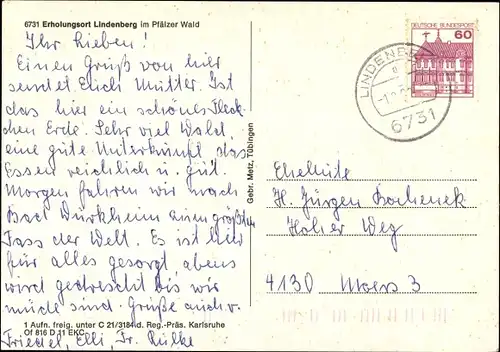 6731 Erholungsort Lindenberg im Pfälzer Wald
Ihr Lieben!
Einen Gruß von hier
sendet Euch Mutter. Ist
das hier ein schönes Fleck-
chen Erde. Sehr viel Wald,
eine gute Unterkunft das
Essen reichlich u. gut.
Morgen fahren wir nach
Bad Dürkheim zum größten
Fass der Welt. Es ist hier
für alles gesorgt, abens
wird gedrescht bis wir
müde sind. Grüße auch v.
Friedel, Elli, Fr. Rülke
1 Aufn. freig. unter C 21/3184 d. Reg.-Präs. Karlsruhe
Of 816 D 11 EKC
Gebr. Metz, Tübingen
DEUTSCHE BUNDESPOST
60
LINDENBE
6731
Eheleute
H. Jürgen
Hoher Weg
4130 Moers 3